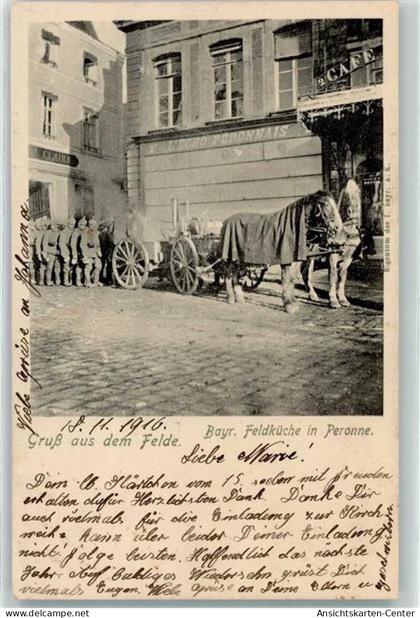 CAFÉ
L'ECHO PERONNAIS
CLAUD
Eigentum des I. bayr. A. K.
18. 11. 1916.
Gruß aus dem Felde.
Bayr. Feldküche in Peronne.
Liebe Marie!
Dein lb. Kärtchen vom 15. mit Freuden
erhalten dafür Herzlichsten Dank. Danke Dir
auch vielmals für die Einladung zur Kirch
weihe kann aber leider Deiner Einladung
nicht Folge leisten. Hoffentlich das nächste
Jahr. Auf Baldiges Wiedersehn grüst Dich
vielmals Eugen. Viele Grüse an Deine Eltern u
Geschwister.
Viele Grüse an Johann
www.Ansichtskarten-Center.de